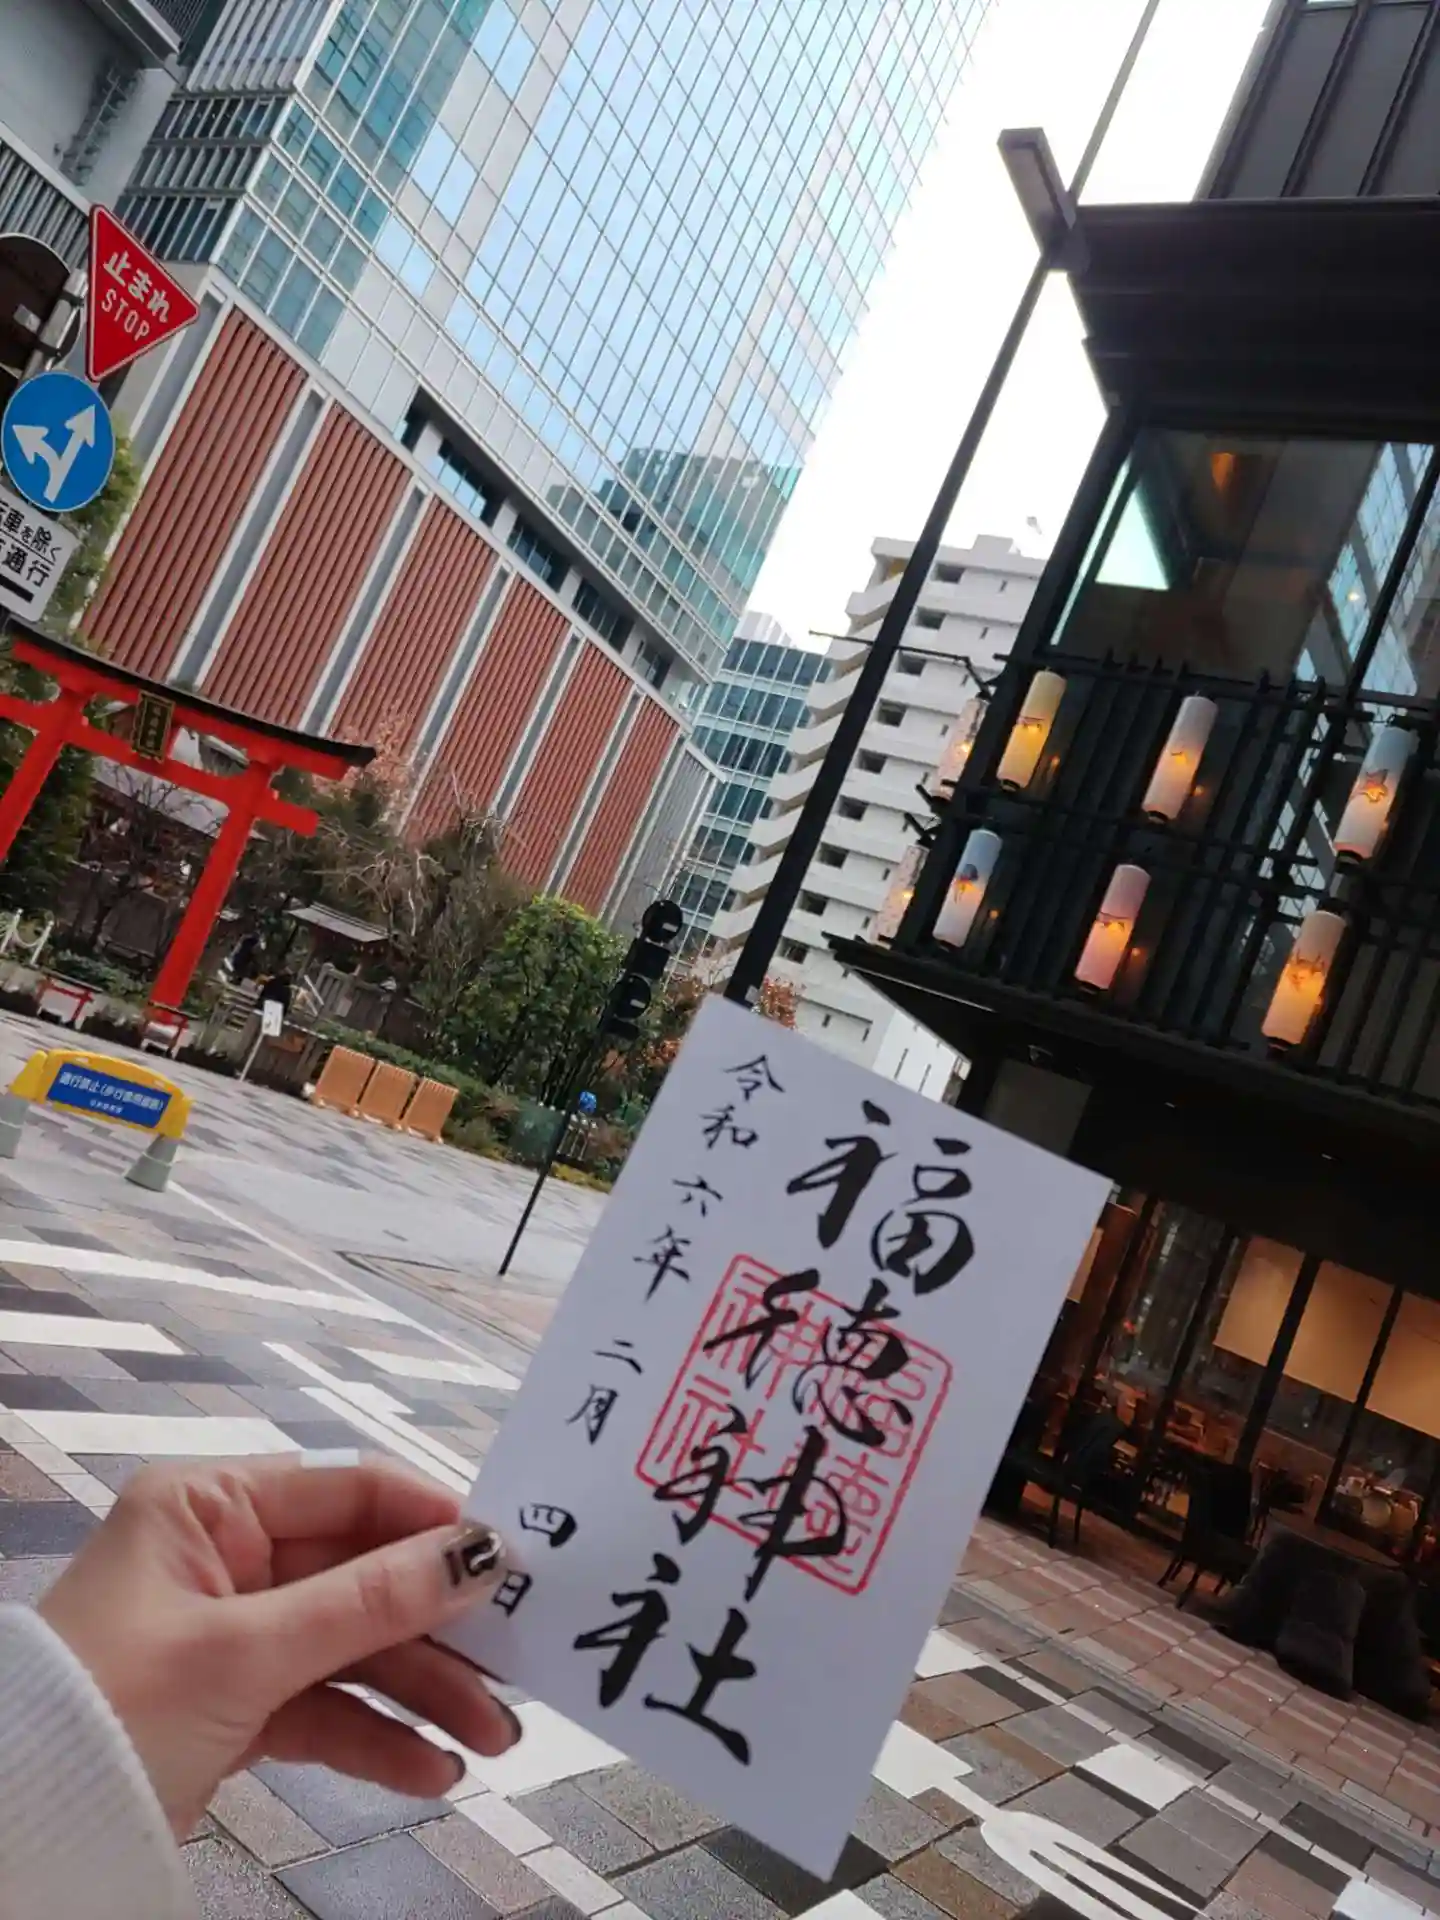 止まれ
STOP
車を除く
通行
通行禁止(歩行者用道路)
福徳神社
令和六年二月四日
福徳
神社